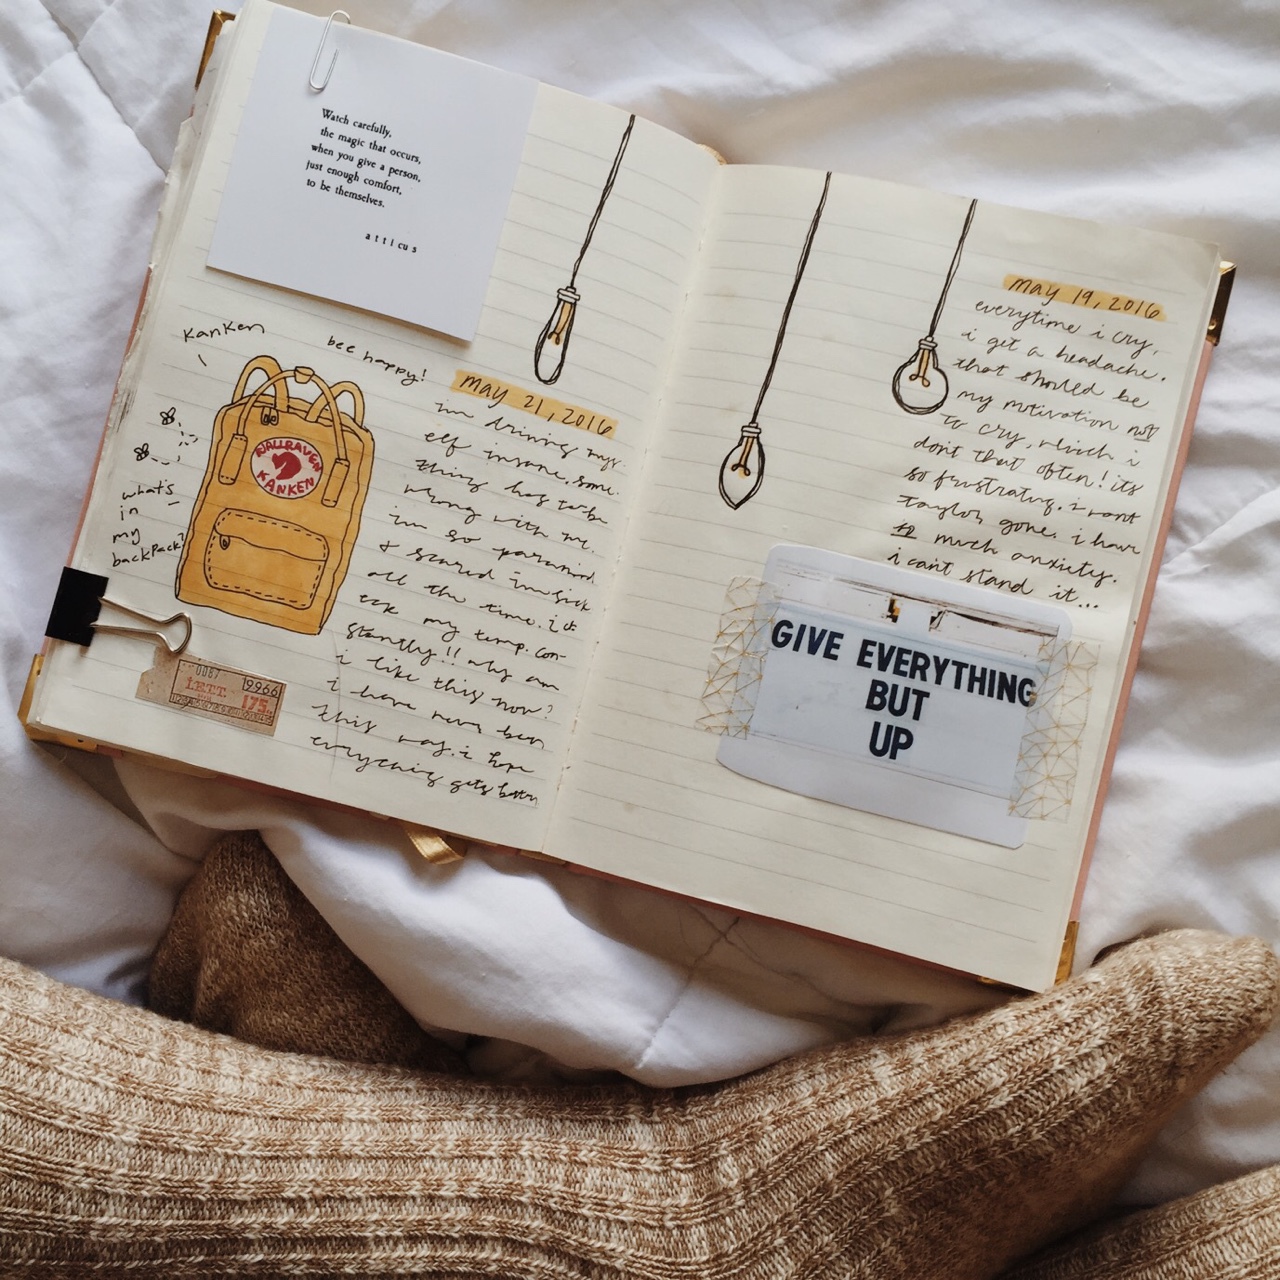 Watch carefully,
the magic that occurs,
when you give a person,
just enough comfort,
to be themselves.
atticus
KanKen
bee happy!
FJALLRAVEN
KANKEN
what's
in
my
backpack?
0087
LETT.
19966
175.
may 21, 2016
im driving mys-
elf insane. some-
thing has to be
wrong with me.
im so paranoid
& scared im sick
all the time. i ch
eck my temp. con-
stantly!! why am
i like this now?
i have never been
this way. i hope
everything gets better
may 19, 2016
everytime i cry,
i get a headache.
that should be
my motivation not
to cry, which i
dont that often! its
so frustrating. i want
taylor gone. i have
so much anxiety.
i cant stand it...
GIVE EVERYTHING
BUT
UP